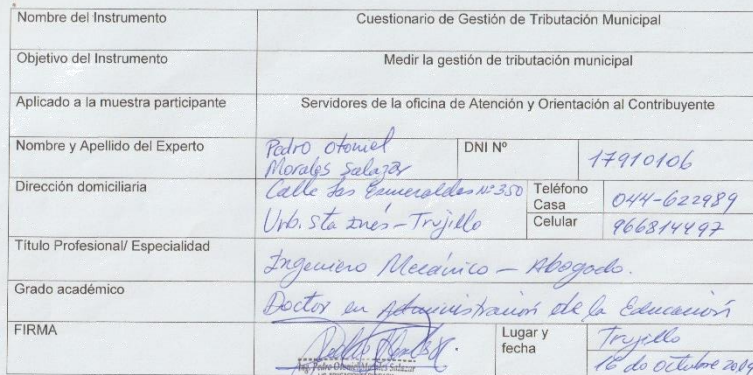 Nombre del Instrumento
Cuestionario de Gestión de Tributación Municipal
Objetivo del Instrumento
Medir la gestión de tributación municipal
Aplicado a la muestra participante
Servidores de la oficina de Atención y Orientación al Contribuyente
Nombre y Apellido del Experto
Pedro Otoniel
Morales Salazar
DNI Nº
17910106
Dirección domiciliaria
Calle Las Esmeraldas Nº 350
Urb. Sta Inés - Trujillo
Teléfono
Casa
044-622989
Celular
966814497
Título Profesional/ Especialidad
Ingeniero Mecánico - Abogado.
Grado académico
Doctor en Administración de la Educación
FIRMA
Ing. Pedro Otoniel Morales Salazar
Lugar y
fecha
Trujillo
16 de Octubre